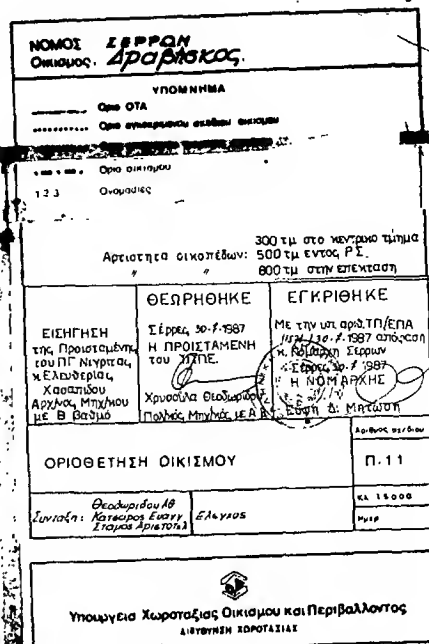 ΝΟΜΟΣ ΣΕΡΡΩΝ
Οικισμος. Δραβήσκος.
ΥΠΟΜΝΗΜΑ
Οριο ΟΤΑ
Οριο εγκεκριμενου σχεδιου οικισμου
Οριο οικισμου
1 2 3 Ονομασιες
300 τμ στο κεντρικο τμημα
Αρτιοτητα οικοπέδων: 500 τμ εντος Ρ.Σ.
" " 800 τμ στην επεκταση
ΕΙΣΗΓΗΣΗ
της Προισταμένης
του ΠΓ Νιγριτας
κ Ελευθερίας
Χασαπιδου
Αρχ/κος Μηχ/κου
με Β βαθμό
ΘΕΩΡΗΘΗΚΕ
Σέρρες, 30-7-1987
Η ΠΡΟΙΣΤΑΜΕΝΗ
του ΥΠΠΕ.
Χρυσούλα Θεοδωρίδου
Πολ/κός Μηχ/κός με Α β.
ΕΓΚΡΙΘΗΚΕ
Με την υπ αριθ. ΤΠ/ΕΠΑ
/30-7-1987 απόφαση
κ. Νομάρχη Σερρών
Σέρρες 30-7-1987
Η ΝΟΜΑΡΧΗΣ
Έφη Δ. Μητώση
ΟΡΙΟΘΕΤΗΣΗ ΟΙΚΙΣΜΟΥ
Αριθμος σχεδιου
Π.11
Συνταξη: Θεοδωριδου Αθ
Κατσαρος Ευαγγ
Σταμος Αριστοτελ
Ελεγχος
ΚΛ 1 5000
Ημερ
Υπουργειο Χωροταξιας Οικισμου και Περιβαλλοντος
ΔΙΕΥΘΥΝΣΗ ΧΩΡΟΤΑΞΙΑΣ